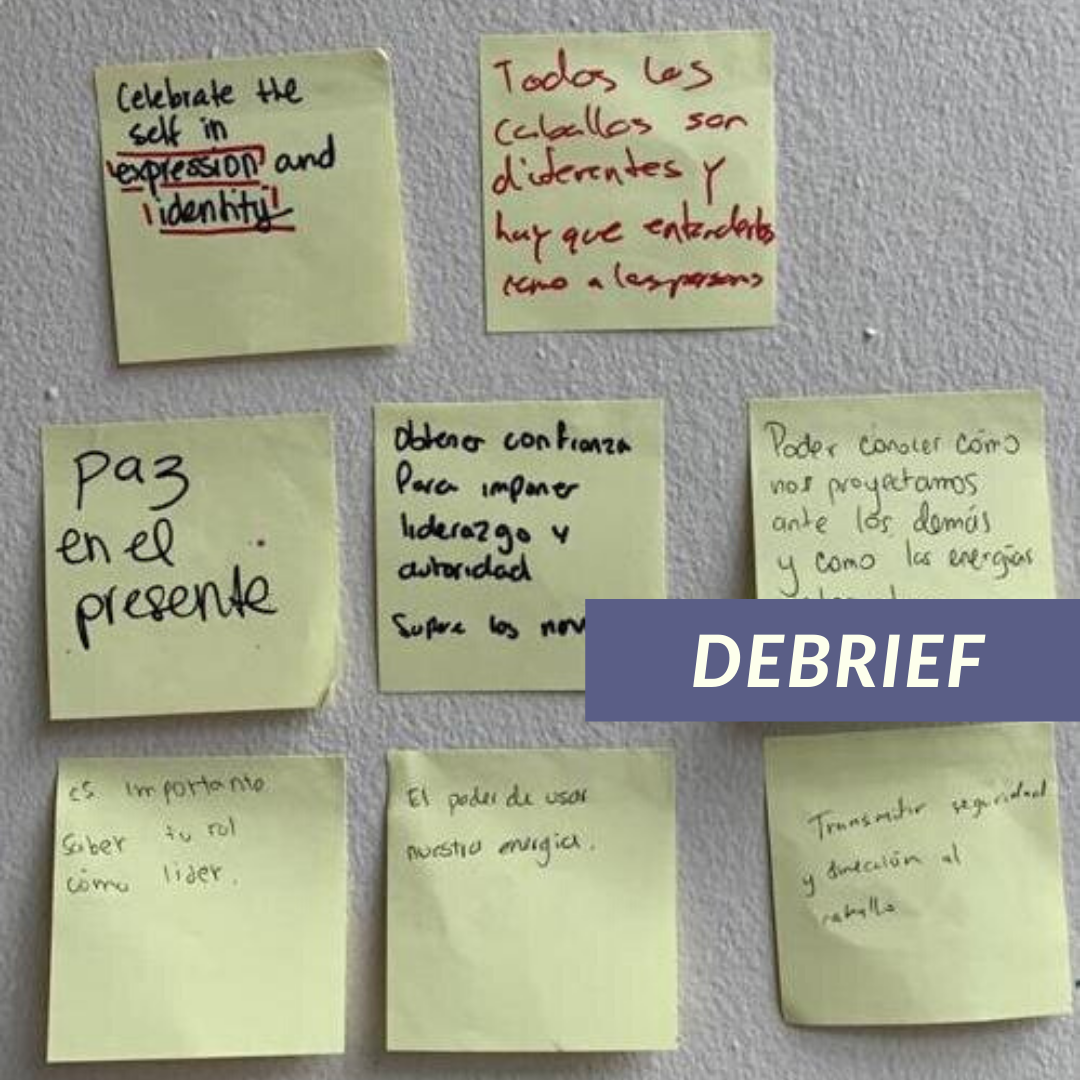 Celebrate the
self in
"expression" and
"identity"
Todos los
caballos son
diferentes y
hay que entenderlos
como a las personas
Paz
en el
presente
Obtener confianza
Para imponer
liderazgo y
autoridad
Supere los
Poder conocer cómo
nos proyectamos
ante los demás
y como las energías
DEBRIEF
es importante
Saber tu rol
cómo lider.
El poder de usar
nuestra energia.
Transmitir seguridad
y dirección al
caballo